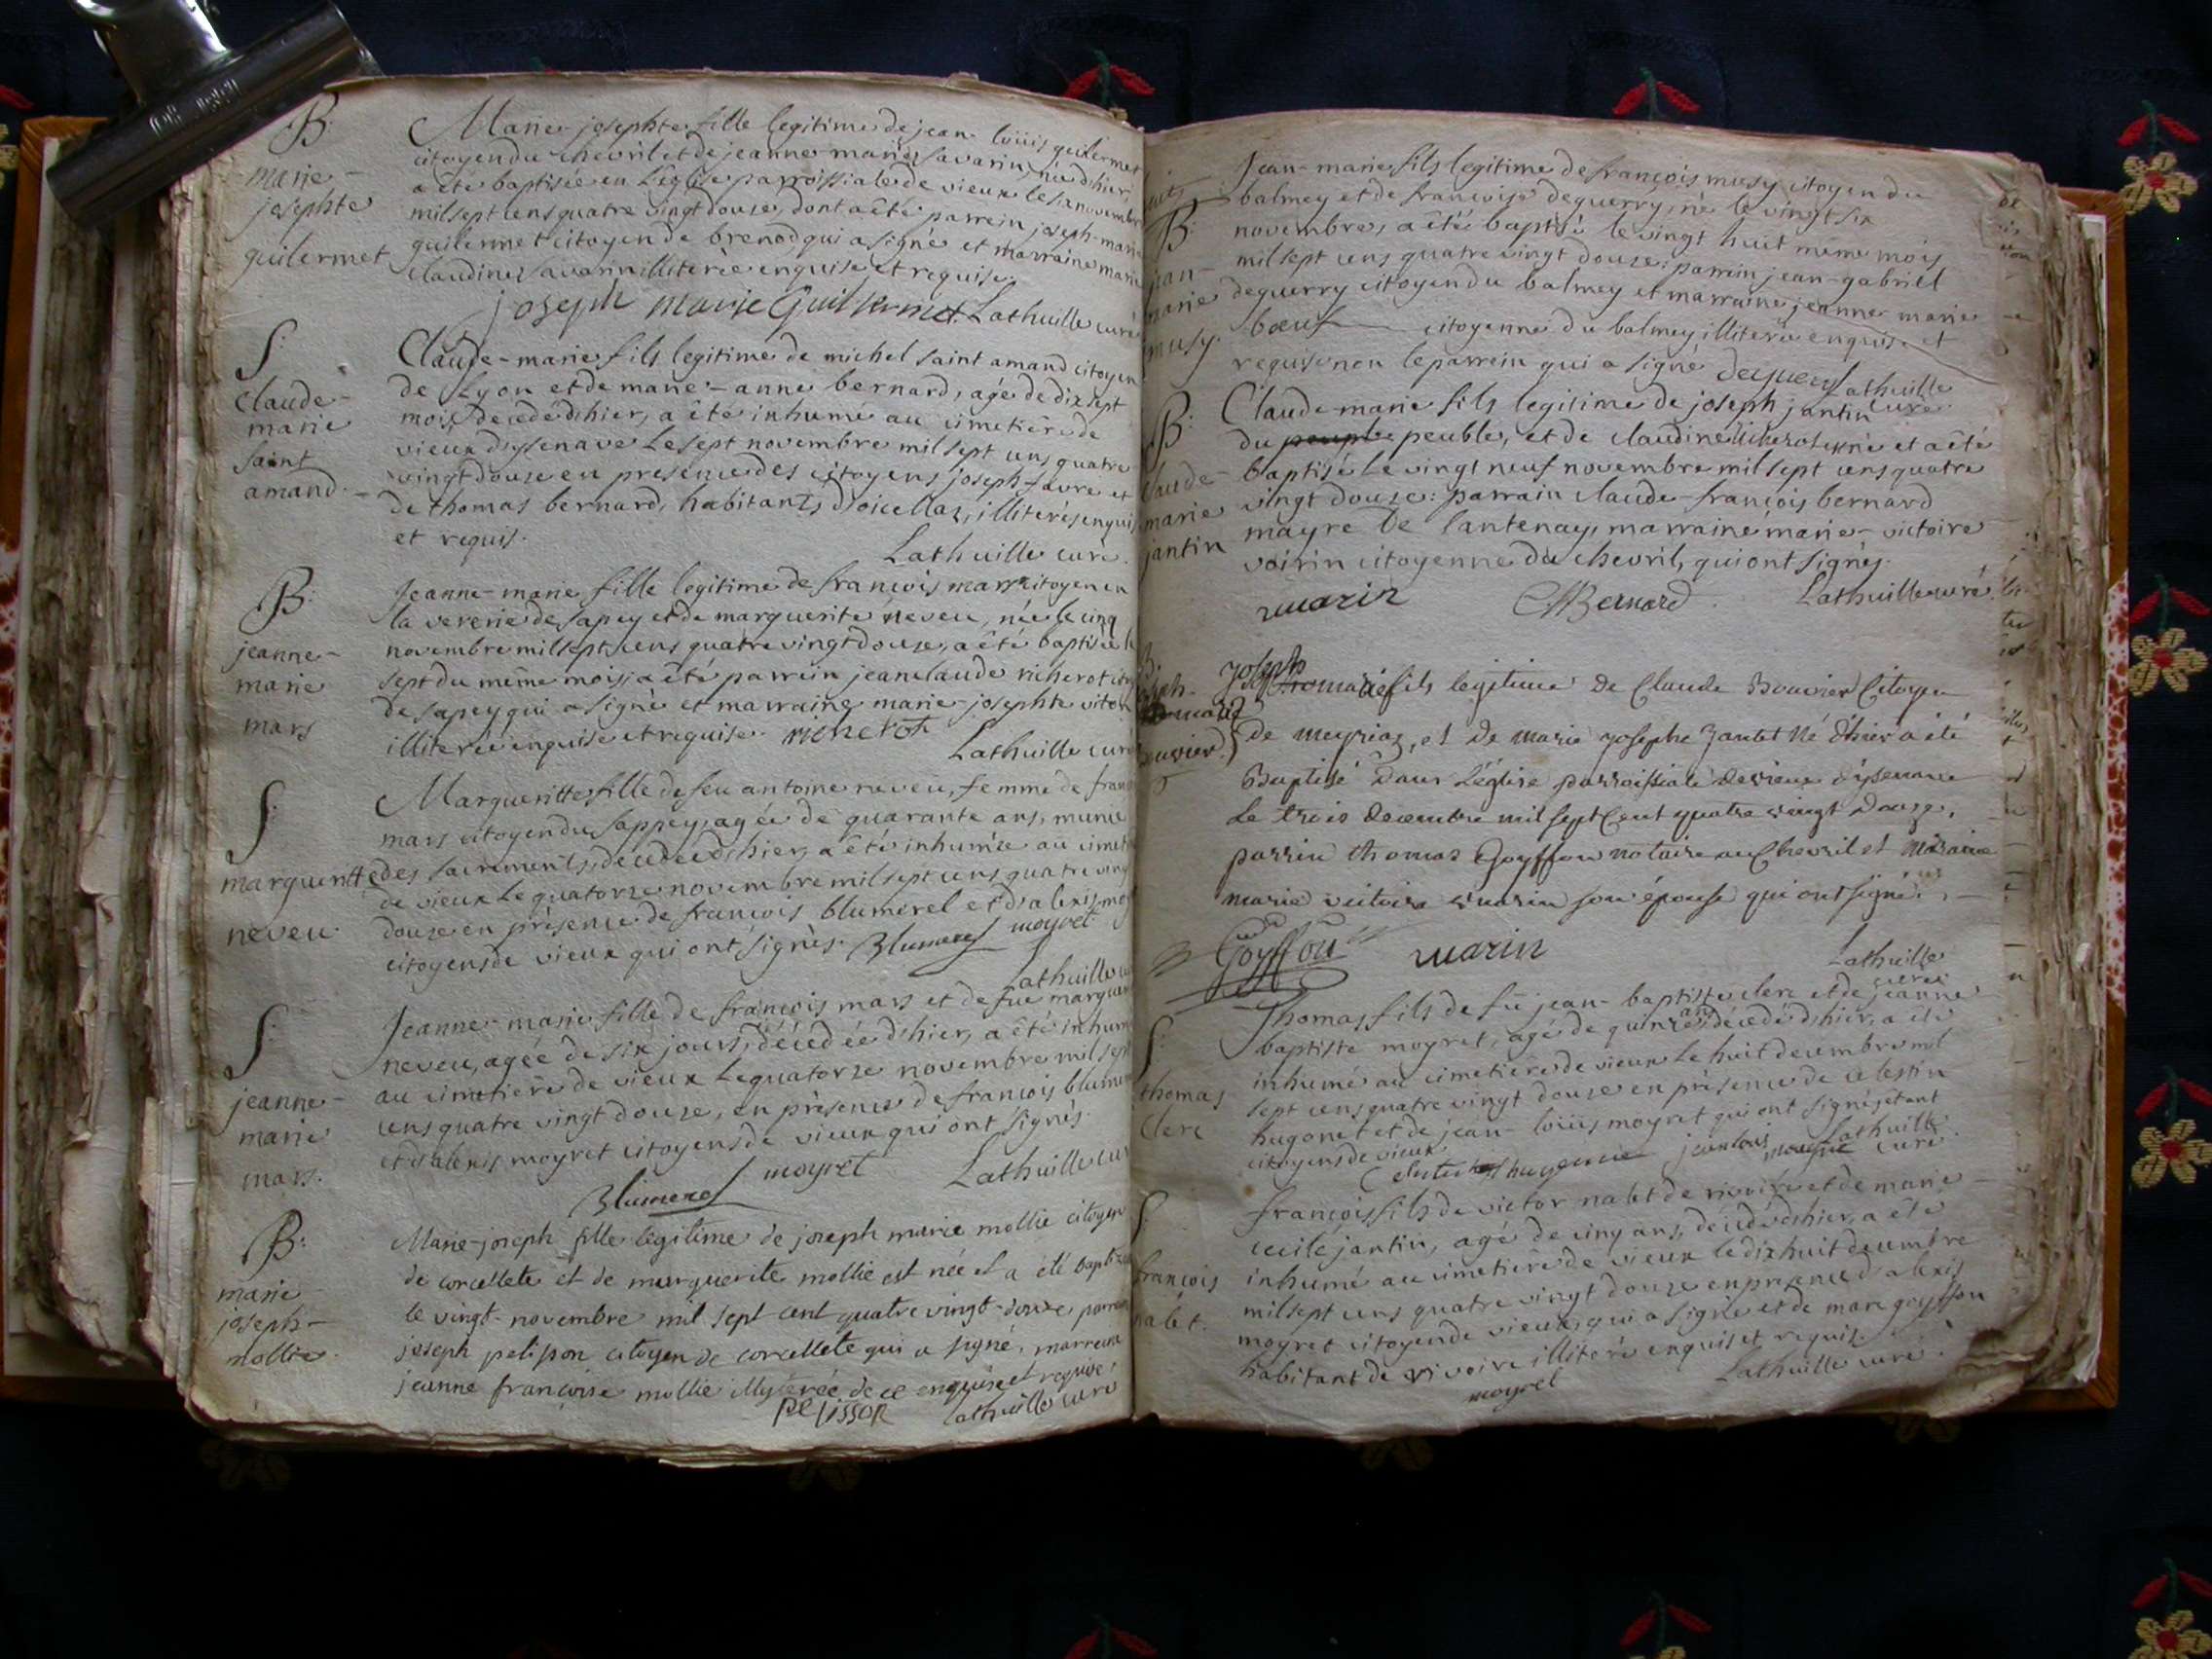 B.
marie-
josephte
guilermet
Marie-josephte fille legitime de jean loüis guilermet
citoyen du chevril et de jeanne-marie savarin, née d'hier,
a été baptisée en l'eglise parroissiale de vieux le six novembre
mil sept cens quatre vingt douze, dont a été parrein joseph-marie
guilermet citoyen de brenod qui a signé et marraine marie
claudine savarin illiterée enquise et requise.
joseph marie Guillermet Lathuille curé
S.
Claude-
marie
saint
amand.
Claude-marie fils legitime de michel saint amand citoyen
de Lyon et de marie-anne bernard, agé de dix sept
mois, decedé d'hier, a été inhumé au cimetiére de
vieux d'ysenave le sept novembre mil sept cens quatre
vingt douze en presence des citoyens joseph favre et
de thomas bernard, habitants d'oicellaz, illiterés enquis
et requis.
Lathuille curé.
B.
jeanne-
marie
mars
Jeanne-marie fille legitime de françois mars citoyen en
la vererie de sapey et de marguerite neveu, née le cinq
novembre mil sept cens quatre vingt douze, a été baptisée le
sept du même mois, a été parrein jean claude richerot
de sapey qui a signé et marraine marie-josephte
illiterée enquise et requise. richerot
Lathuille curé
S.
margueritte
neveu
Margueritte fille de feu antoine neveu, femme de
mars citoyen du sappey, agée de quarante ans, munie
des sacrements, decedée d'hier, a été inhumée au
de vieux le quatorze novembre mil sept cens quatre vingt
douze en présence de françois blumerel et d'alexis
citoyens de vieux qui ont signés. Blumerel moyret
Lathuille
S.
jeanne-
marie
mars.
Jeanne-marie fille de françois mars et de fuë
neveu, agée de six jours, décédée d'hier, a été
au cimetiére de vieux le quatorze novembre mil sept
cens quatre vingt douze, en présence de françois
et d'alexis moyret citoyens de vieux qui ont signés.
Blumerel moyret Lathuille
B.
marie
joseph-
mollie.
Marie-joseph fille legitime de joseph marie mollie citoyen
de corcellete et de marguerite mollie est née et a été baptisée
le vingt novembre mil sept cent quatre vingt-douze
joseph pelisson citoyen de corcellete qui a signé, marreine
jeanne françoise mollie illyterée de ce enquise et requise,
pelisson Lathuille curé
B.
jean-
marie
musy.
Jean-marie fils legitime de françois musy citoyen du
balmey et de françoise deguerry, né le vingt six
novembre, a été baptisé le vingt huit même mois
mil sept cens quatre vingt douze: parrein jean-gabriel
deguerry citoyen du balmey et marraine jeanne marie
bœuf citoyenne du balmey illiterée enquise et
requise non le parrein qui a signé deguerry Lathuille
curé.
B.
claude-
marie
jantin
Claude-marie fils legitime de joseph jantin
du peuble, et de claudine né et a été
baptisé le vingt neuf novembre mil sept cens quatre
vingt douze: parrain claude-françois bernard
mayre de lantenay, marraine marie-victoire
citoyenne du chevril, qui ont signés.
Bernard. Lathuille curé
joseph
fils legitime de Claude Bouvier Citoyen
de meyriaz, et de marie josephe jantet Né d'hier a été
Baptisé dans L'église parroissiale de vieux d'ysenave
Le trois decembre mil sept Cent quatre vingt Douze,
parrein thomas Goyffon notaire au Chevril et maraine
marie victoire son épouse qui ont signé.
Goyffon Lathuille
curé
S.
thomas
clerc
Thomas fils de fû jean-baptiste clerc et de jeanne
baptiste moyret, agé de quinze ans, décédé d'hier, a été
inhumé au cimetiére de vieux le huit decembre mil
sept cens quatre vingt douze en présence de celestin
hugonet et de jean-loüis moyret qui ont signés, etant
citoyens de vieux.
jean louis Lathuille
curé.
S.
françois
nalet.
françois fils de victor nalet de rivoire et de marie-
cecile jantin, agé de cinq ans, décédé d'hier, a été
inhumé au cimetiére de vieux le dix huit decembre
mil sept cens quatre vingt douze en présence d'alexis
moyret citoyen de vieux qui a signé et de marc goyffon
habitant de rivoire illiteré enquis et requis.
moyret Lathuille curé.